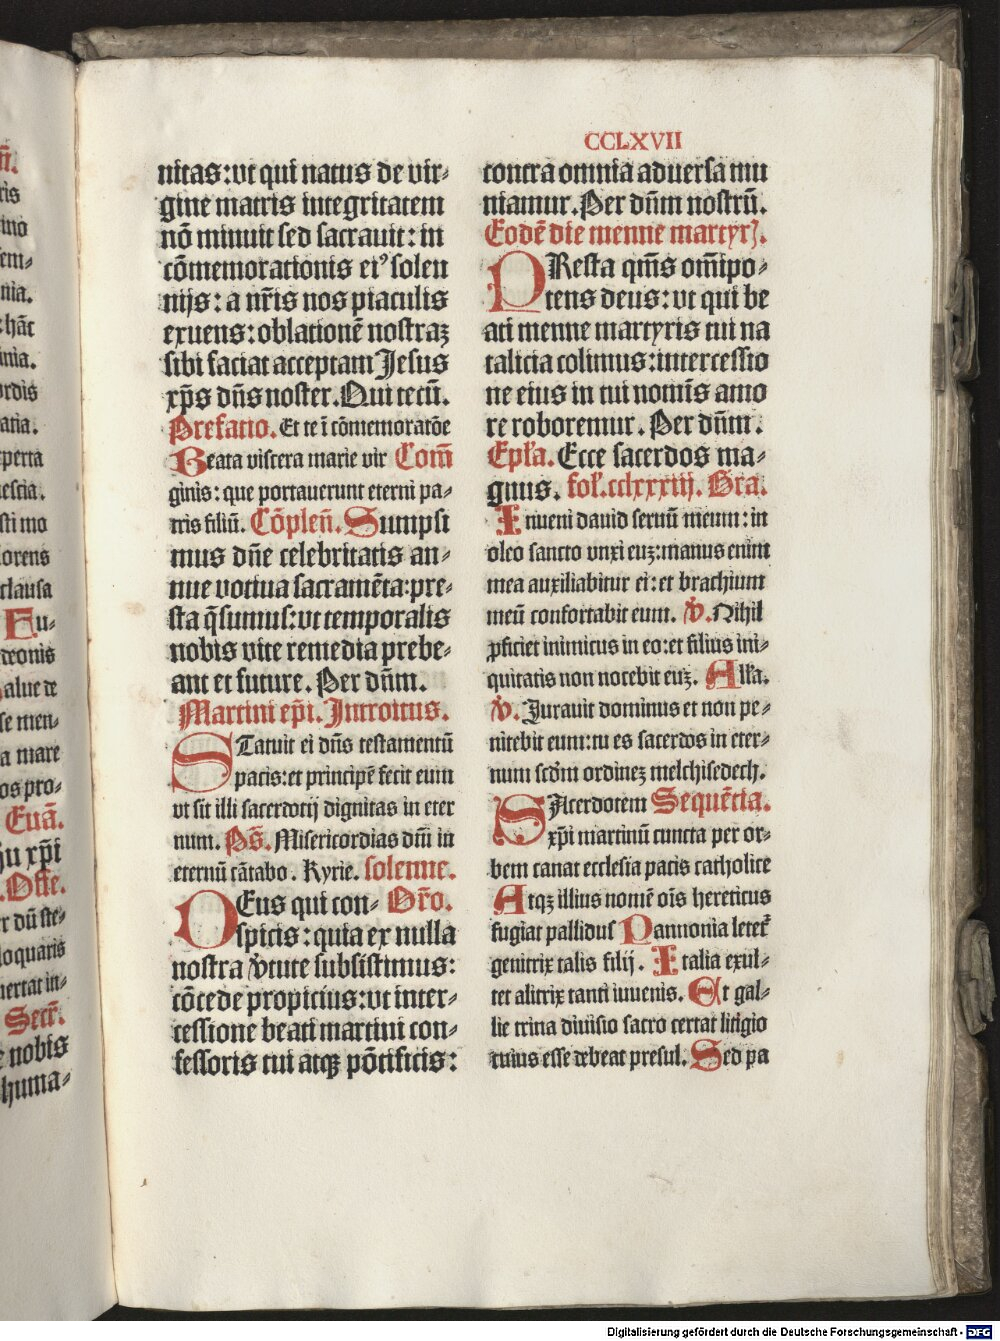 CCLXVII
nitas: vt qui natus de vir-
gine matris integritatem
nō minuit sed sacrauit: in
cōmemorationis eiꝰ solen
nijs: a nr̄is nos piaculis
exuens: oblationē nostraꝫ
sibi faciat acceptam Jesus
xp̄s dn̄s noster. Qui tecū.
Prefatio. Et te ī cōmemoratōe
Beata viscera marie vir Com̄
ginis: que portauerunt eterni pa-
tris filiū. Cōplen̄. Sumpsi
mus dn̄e celebritatis an-
nue votiua sacramēta: pre-
sta q̄sumus: vt temporalis
nobis vite remedia prebe-
ant et future. Per dn̄m.
Martini ep̄i. Introitus.
STatuit ei dn̄s testamentū
pacis: et principē fecit eum
vt sit illi sacerdotij dignitas in eter
num. Ps̄. Misericordias dn̄i in
eternū cātabo. Kyrie. solenne.
DEus qui con- Or̄o.
spicis: quia ex nulla
nostra v̄tute subsistimus:
cōcede propicius: vt inter-
cessione beati martini con-
fessoris tui atqꝫ pōtificis:
contra omnia aduersa mu
niamur. Per dn̄m nostrū.
Eodē die menne martyrꝭ.
PResta qm̄s om̄ipo-
tens deus: vt qui be
ati menne martyris tui na
talicia colimus: intercessio
ne eius in tui nomīs amo
re roboremur. Per dn̄m.
Ep̄la. Ecce sacerdos ma-
gnus. fol. cclxxxiij. Gra.
Inueni dauid seruū meum: in
oleo sancto vnxi euꝫ: manus enim
mea auxiliabitur ei: et brachium
meū confortabit eum. v̄. Nihil
ꝓficiet inimicus in eo: et filius ini-
quitatis non nocebit euꝫ. Alla.
v̄. Jurauit dominus et non pe-
nitebit eum: tu es sacerdos in eter-
num scd̄m ordineꝫ melchisedech.
SAcerdotem Sequētia.
xp̄i martinū cuncta per or-
bem canat ecclesia pacis catholice
Atqꝫ illius nomē oīs hereticus
fugiat pallidus Pannonia letet᷑
genitrix talis filij. Italia exul-
tet alitrix tanti iuuenis. Et gal-
lie trina diuisio sacro certat litigio
cuius esse debeat presul. Sed pa
Digitalisierung gefördert durch die Deutsche Forschungsgemeinschaft - DFG